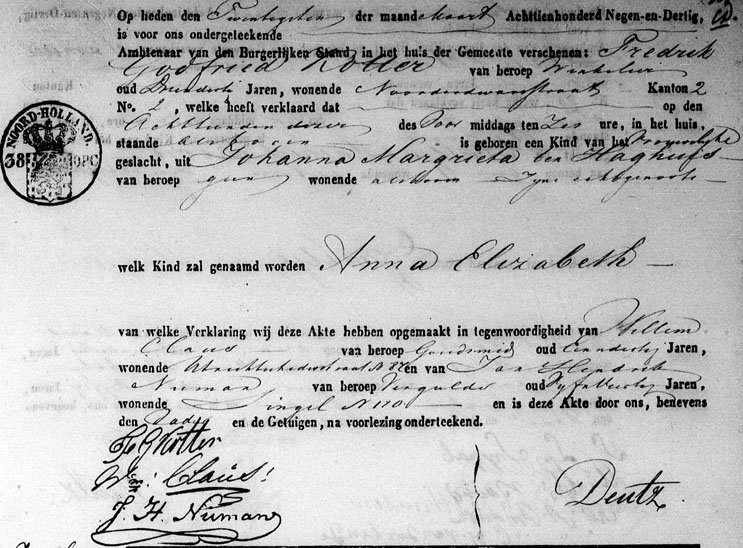 Op heden den Twintigsten der maand Maart Achttienhonderd Negen-en-Dertig,
is voor ons ondergeteekende
Ambtenaar van den Burgerlijken Stand, in het huis der Gemeente verschenen: Fredrik
Godfried Kotter van beroep Winkelier
oud Jaren, wonende Noorderdwarsstraat Kanton 2
No. 2, welke heeft verklaard dat op den
Achttienden dezer des Voor middags ten Zes ure, in het huis,
staande als boven is geboren een Kind van het Vrouwelijke
geslacht, uit Johanna Margrieta ten Haghuys
van beroep geen wonende als boven Zijne echtgenoote
welk Kind zal genaamd worden Anna Elizabeth
van welke Verklaring wij deze Akte hebben opgemaakt in tegenwoordigheid van Willem
Claus van beroep Goudsmid oud Jaren,
wonende Utrechtschedwarsstraat N en van Jan Hendrik
Nieman van beroep Vergulder oud Jaren,
wonende Singel N 170 en is deze Akte door ons, benevens
den Vader en de Getuigen, na voorlezing onderteekend.
F G Kotter
Wm: Claus!
J. H. Nieman
Deutz
NOORD-HOLLAND.
38 OPC